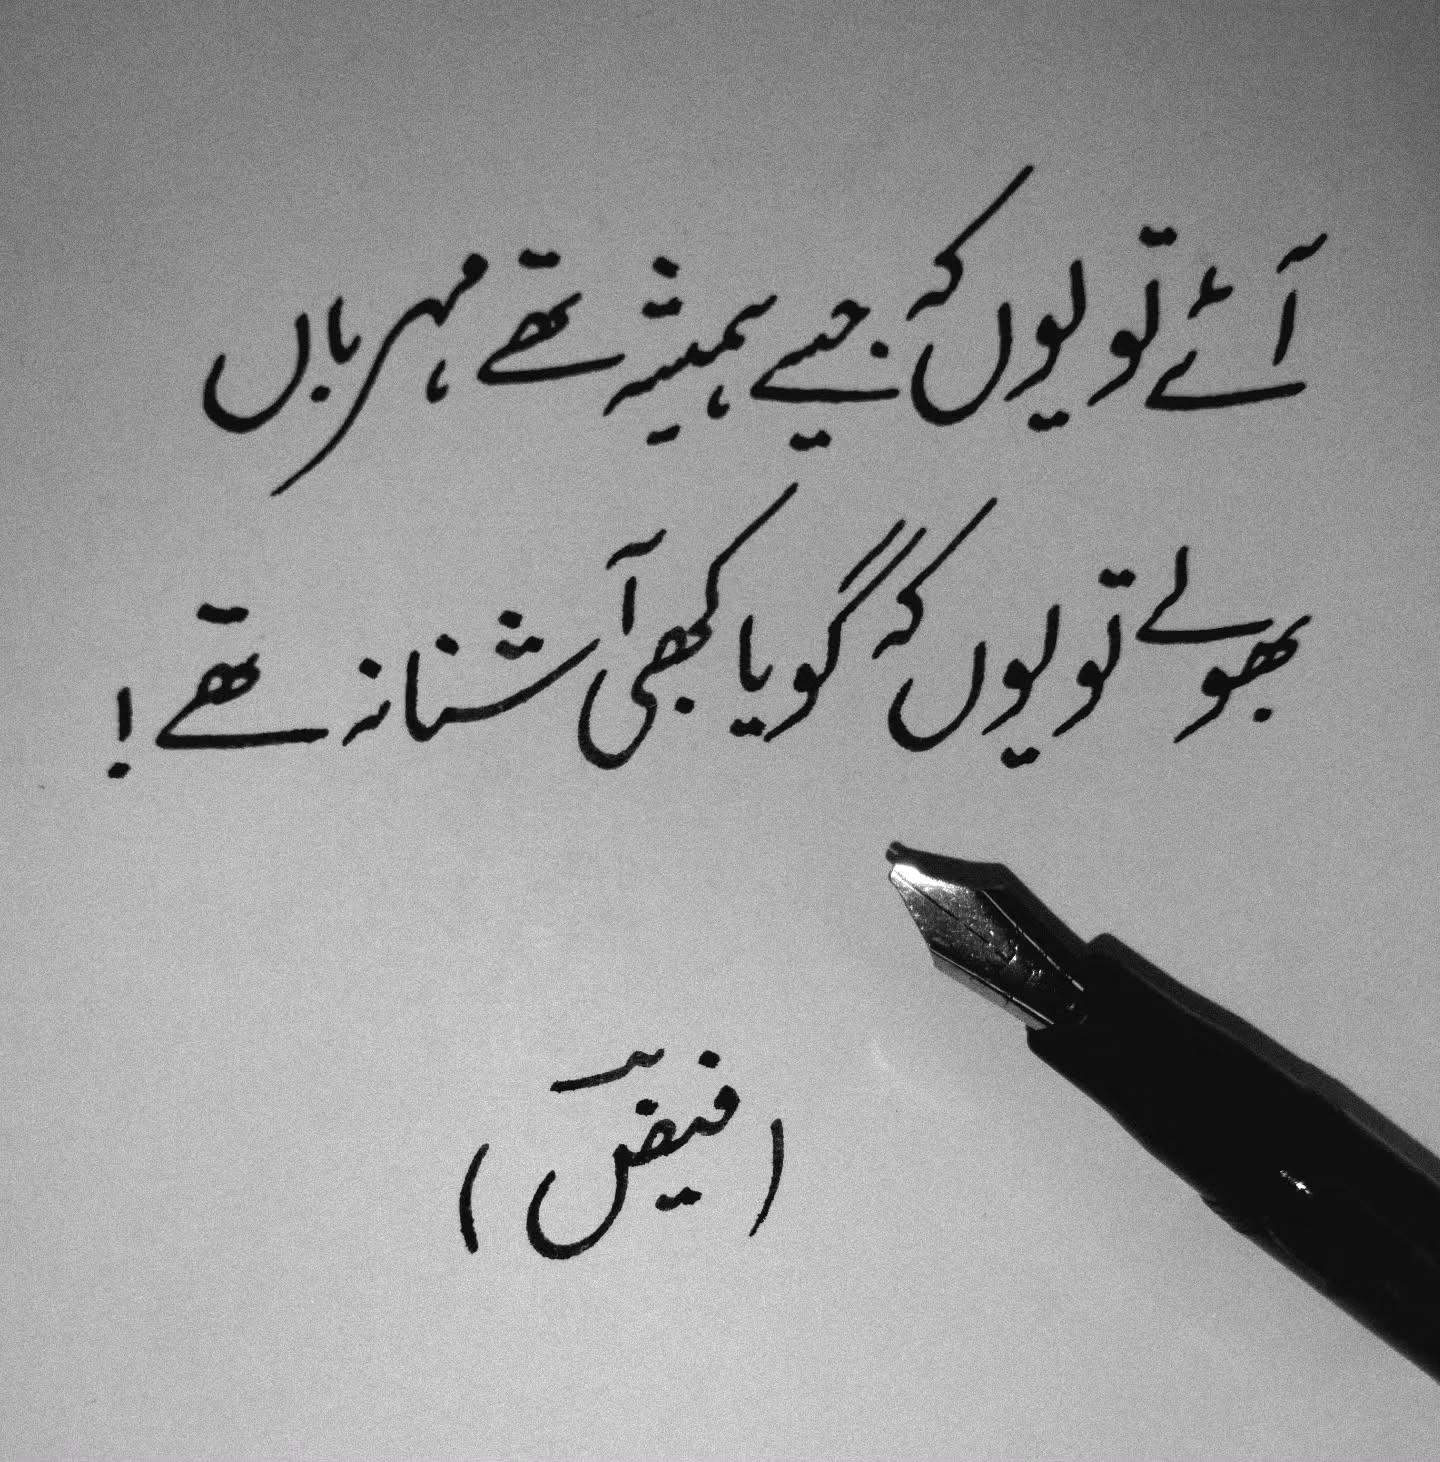 آئے تو یوں کہ جیسے ہمیشہ تھے مہرباں
بھولے تو یوں کہ گویا کبھی آشنا نہ تھے!
(فیضؔ)